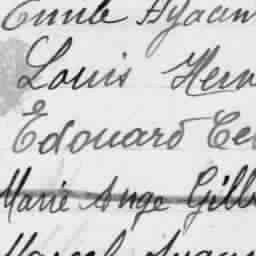 Emile Hyacin
Louis Herv
Edouard Cel
Marie Ange Gilb
Marcel Augus